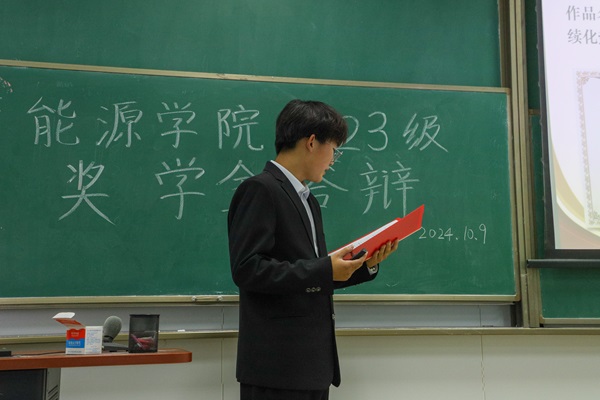 能源学院 23级
奖学金答辩
2024.10.9
作品
续化